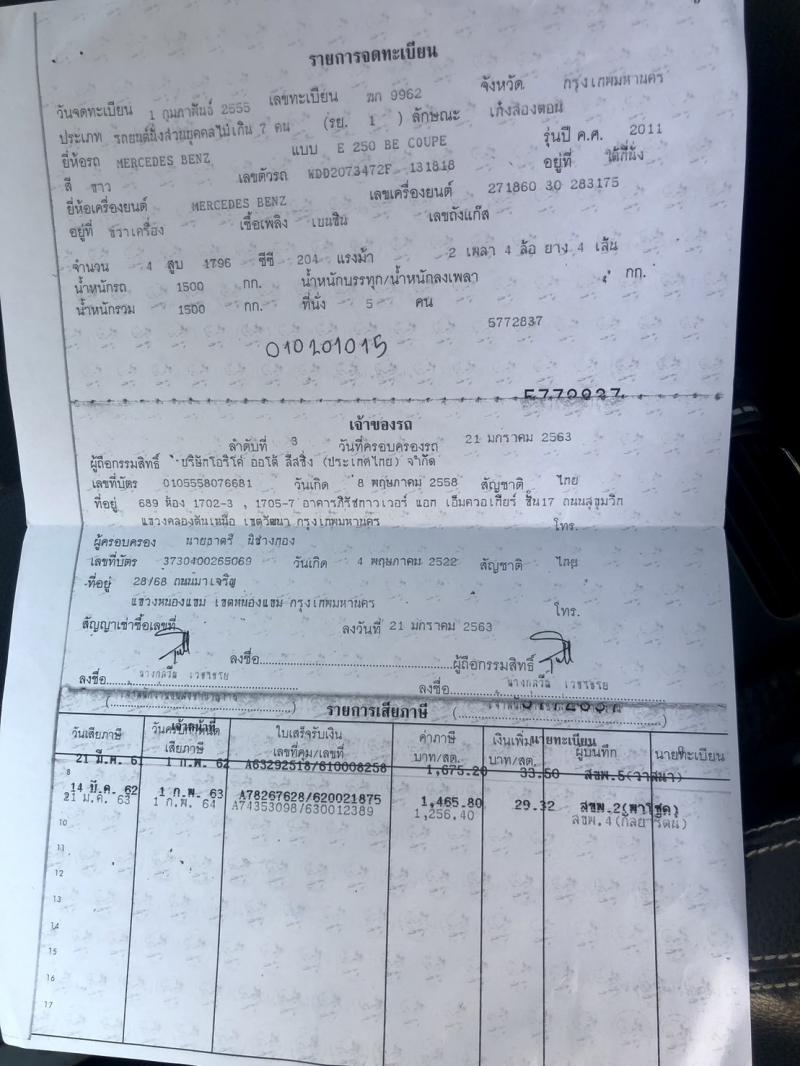 รายการจดทะเบียน
วันจดทะเบียน 1 กุมภาพันธ์ 2555 เลขทะเบียน ฆก 9962 จังหวัด กรุงเทพมหานคร
ประเภท รถยนต์นั่งส่วนบุคคลไม่เกิน 7 คน (รย. 1 ) ลักษณะ เก๋งสองตอน
ยี่ห้อรถ MERCEDES BENZ แบบ E 250 BE COUPE รุ่นปี ค.ศ. 2011
สี ขาว เลขตัวรถ WDD2073472F 131818 อยู่ที่ ใต้ที่นั่ง
ยี่ห้อเครื่องยนต์ MERCEDES BENZ เลขเครื่องยนต์ 271860 30 283175
อยู่ที่ ขวาเครื่อง เชื้อเพลิง เบนซิน เลขถังแก๊ส
จำนวน 4 สูบ 1796 ซีซี 204 แรงม้า 2 เพลา 4 ล้อ ยาง 4 เส้น
น้ำหนักรถ 1500 กก. น้ำหนักบรรทุก/น้ำหนักลงเพลา กก.
น้ำหนักรวม 1500 กก. ที่นั่ง 5 คน
5772837
010201015
เจ้าของรถ
ลำดับที่ 3 วันที่ครอบครองรถ 21 มกราคม 2563
ผู้ถือกรรมสิทธิ์ บริษัทโอริโค่ ออโต้ ลีสซิ่ง (ประเทศไทย) จำกัด
เลขที่บัตร 0105558076681 วันเกิด 8 พฤษภาคม 2558 สัญชาติ ไทย
ที่อยู่ 689 ห้อง 1702-3 , 1705-7 อาคารภิรัชทาวเวอร์ แอท เอ็มควอเทียร์ ชั้น17 ถนนสุขุมวิท
แขวงคลองตันเหนือ เขตวัฒนา กรุงเทพมหานคร โทร.
ผู้ครอบครอง นายธาตรี
เลขที่บัตร 3730400265069 วันเกิด 4 พฤษภาคม 2522 สัญชาติ ไทย
ที่อยู่ 28/68 ถนนมาเจริญ
แขวงหนองแขม เขตหนองแขม กรุงเทพมหานคร โทร.
สัญญาเช่าซื้อเลขที่ ลงวันที่ 21 มกราคม 2563
ลงชื่อ ผู้ถือกรรมสิทธิ์
ลงชื่อ ลงชื่อ
รายการเสียภาษี
วันเสียภาษี เสียภาษี ใบเสร็จรับเงิน เลขที่คุม/เลขที่ ค่าภาษี บาท/สต. เงินเพิ่ม บาท/สต. ผู้บันทึก นายทะเบียน
21 มี.ค. 61 1 ก.พ. 62 A63292518/610008258 1,675.20 33.50 สขพ.5(วาสนา)
14 มี.ค. 62 1 ก.พ. 63 A78267628/620021875 1,465.80 29.32 สขพ.2(พาโชค)
21 ม.ค. 63 1 ก.พ. 64 A74353098/630012389 1,256.40 สขพ.4(กัลยารัตน์)
10
11
12
14
15
16
17